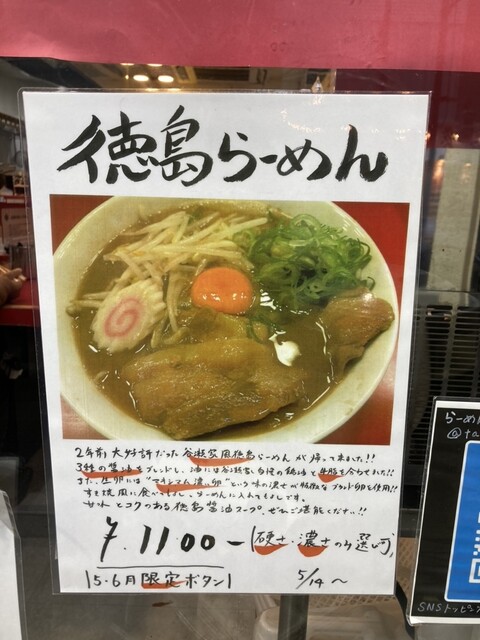 徳島らーめん
2年前大好評だった谷瀬家風徳島らーめんが帰って来ました!!
3種の醤油をブレンドし、油には谷瀬家自慢の鶏油と牛脂を合わせました!!
また、生卵には"マキシマム濃い卵"という味の濃さが特徴なブランド卵を使用!!
すき焼風に食べてもよし、らーめんに入れてもよしです。
甘れとコクのある徳島醤油スープ、ぜひご堪能ください!!
¥1100-(硬さ・濃さのみ選べ可)
5・6月限定ボタン 5/14〜
らーめん
@ta
SNSトッピン